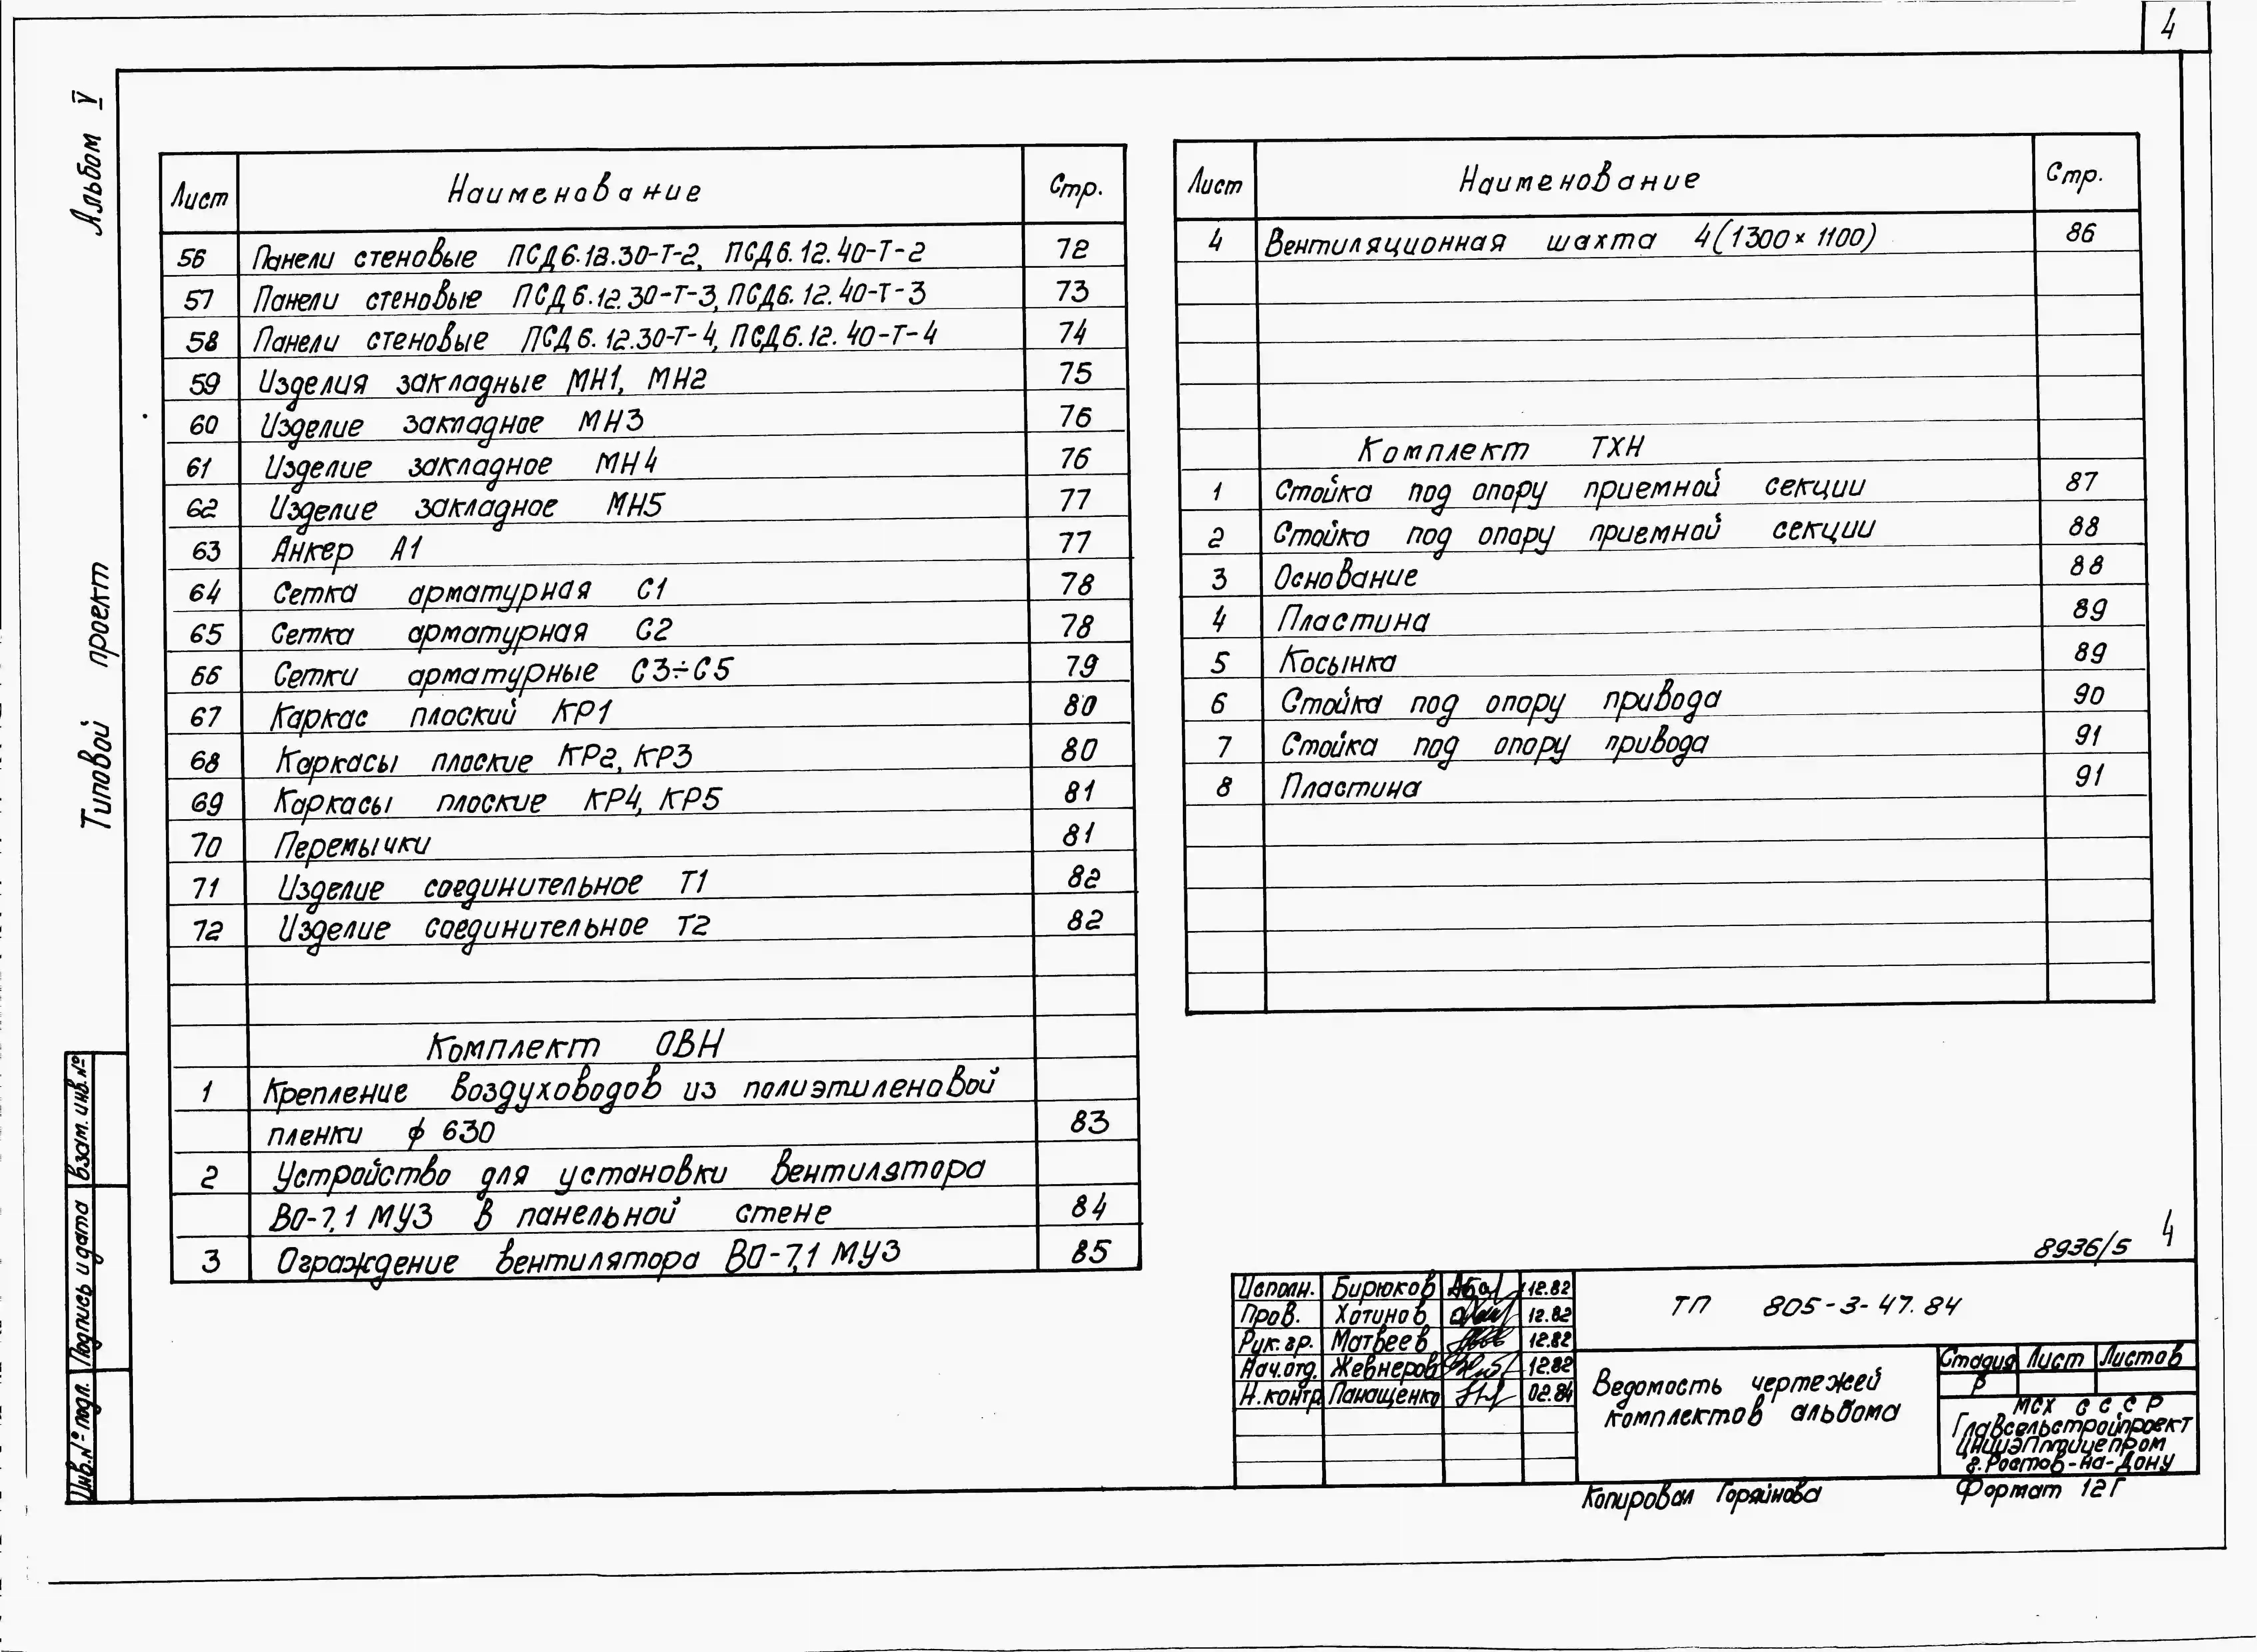 4
Альбом V
Типовой проект
Лист Наименование Стр.
56 Панели стеновые ПСД6.12.30-Т-2, ПСД6.12.40-Т-2 72
57 Панели стеновые ПСД6.12.30-Т-3, ПСД6.12.40-Т-3 73
58 Панели стеновые ПСД6.12.30-Т-4, ПСД6.12.40-Т-4 74
59 Изделия закладные МН1, МН2 75
60 Изделие закладное МН3 76
61 Изделие закладное МН4 76
62 Изделие закладное МН5 77
63 Анкер А1 77
64 Сетка арматурная С1 78
65 Сетка арматурная С2 78
66 Сетки арматурные С3÷С5 79
67 Каркас плоский КР1 80
68 Каркасы плоские КР2, КР3 80
69 Каркасы плоские КР4, КР5 81
70 Перемычки 81
71 Изделие соединительное Т1 82
72 Изделие соединительное Т2 82
Комплект ОВН
1 Крепление воздуховодов из полиэтиленовой
пленки ф 630 83
2 Устройство для установки вентилятора
ВО-7,1 МУ3 в панельной стене 84
3 Ограждение вентилятора ВО-7,1 МУ3 85
Лист Наименование Стр.
4 Вентиляционная шахта 4(1300×1100) 86
Комплект ТХН
1 Стойка под опору приемной секции 87
2 Стойка под опору приемной секции 88
3 Основание 88
4 Пластина 89
5 Косынка 89
6 Стойка под опору привода 90
7 Стойка под опору привода 91
8 Пластина 91
Взам. инв.№
Подпись и дата
Инв.№ подл.
8936/5 4
Исполн. Бирюков 12.82
Пров. Хотинов 12.82
Рук.гр. Матвеев 12.82
Нач.отд. Жевнеров 12.82
Н.контр Панащенко 02.84
ТП 805-3-47.84
Ведомость чертежей
комплектов альбома
Стадия Лист Листов
Р
МСХ СССР
Главсельстройпроект
ЦНИИЭПптицепром
г.Ростов-на-Дону
Копировал Горяйнова Формат 12Г